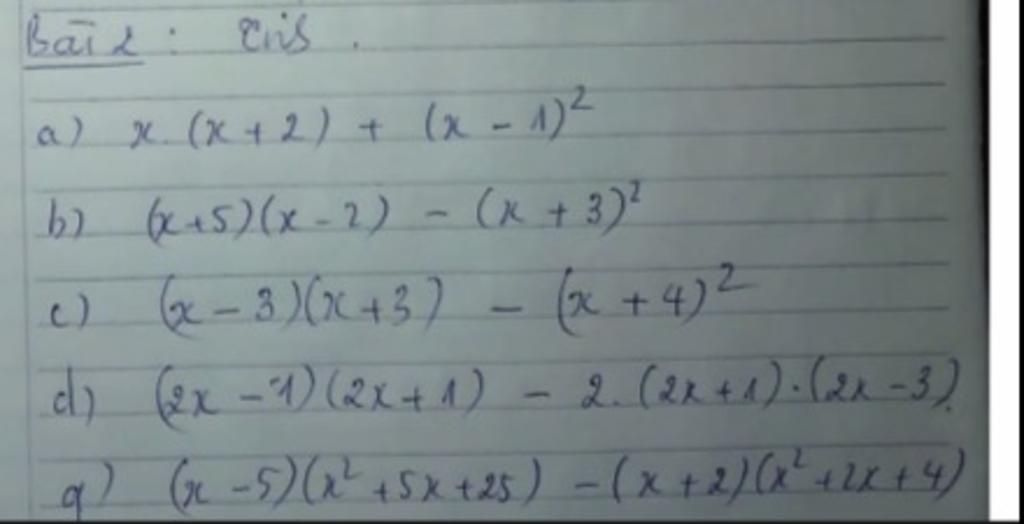 Bài 2 :
a) x.(x+2) + (x - 1)²
b) (x+5)(x-2) - (x + 3)²
c) (x-3)(x+3) - (x + 4)²
d) (2x -1)(2x+1) - 2.(2x+1).(2x-3)
g) (x-5)(x²+5x+25) -(x+2)(x²+2x+4)